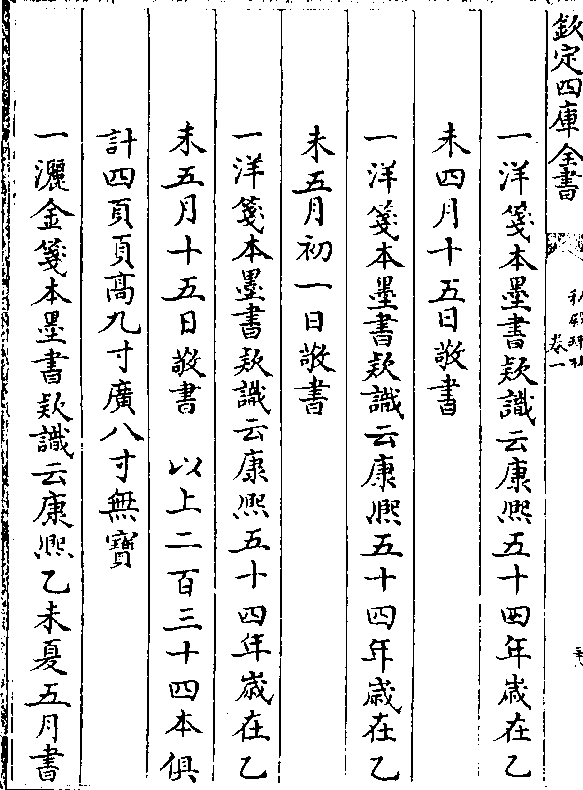 欽定四庫全書
卷一
一洋箋本墨書款識云康熙五十四年歲在乙
未四月十五日敬書
一洋箋本墨書款識云康熙五十四年歲在乙
未五月初一日敬書
一洋箋本墨書款識云康熙五十四年歲在乙
未五月十五日敬書 以上二百三十四本俱
計四頁頁高九寸廣八寸無寶
一灑金箋本墨書款識云康熙乙未夏五月書